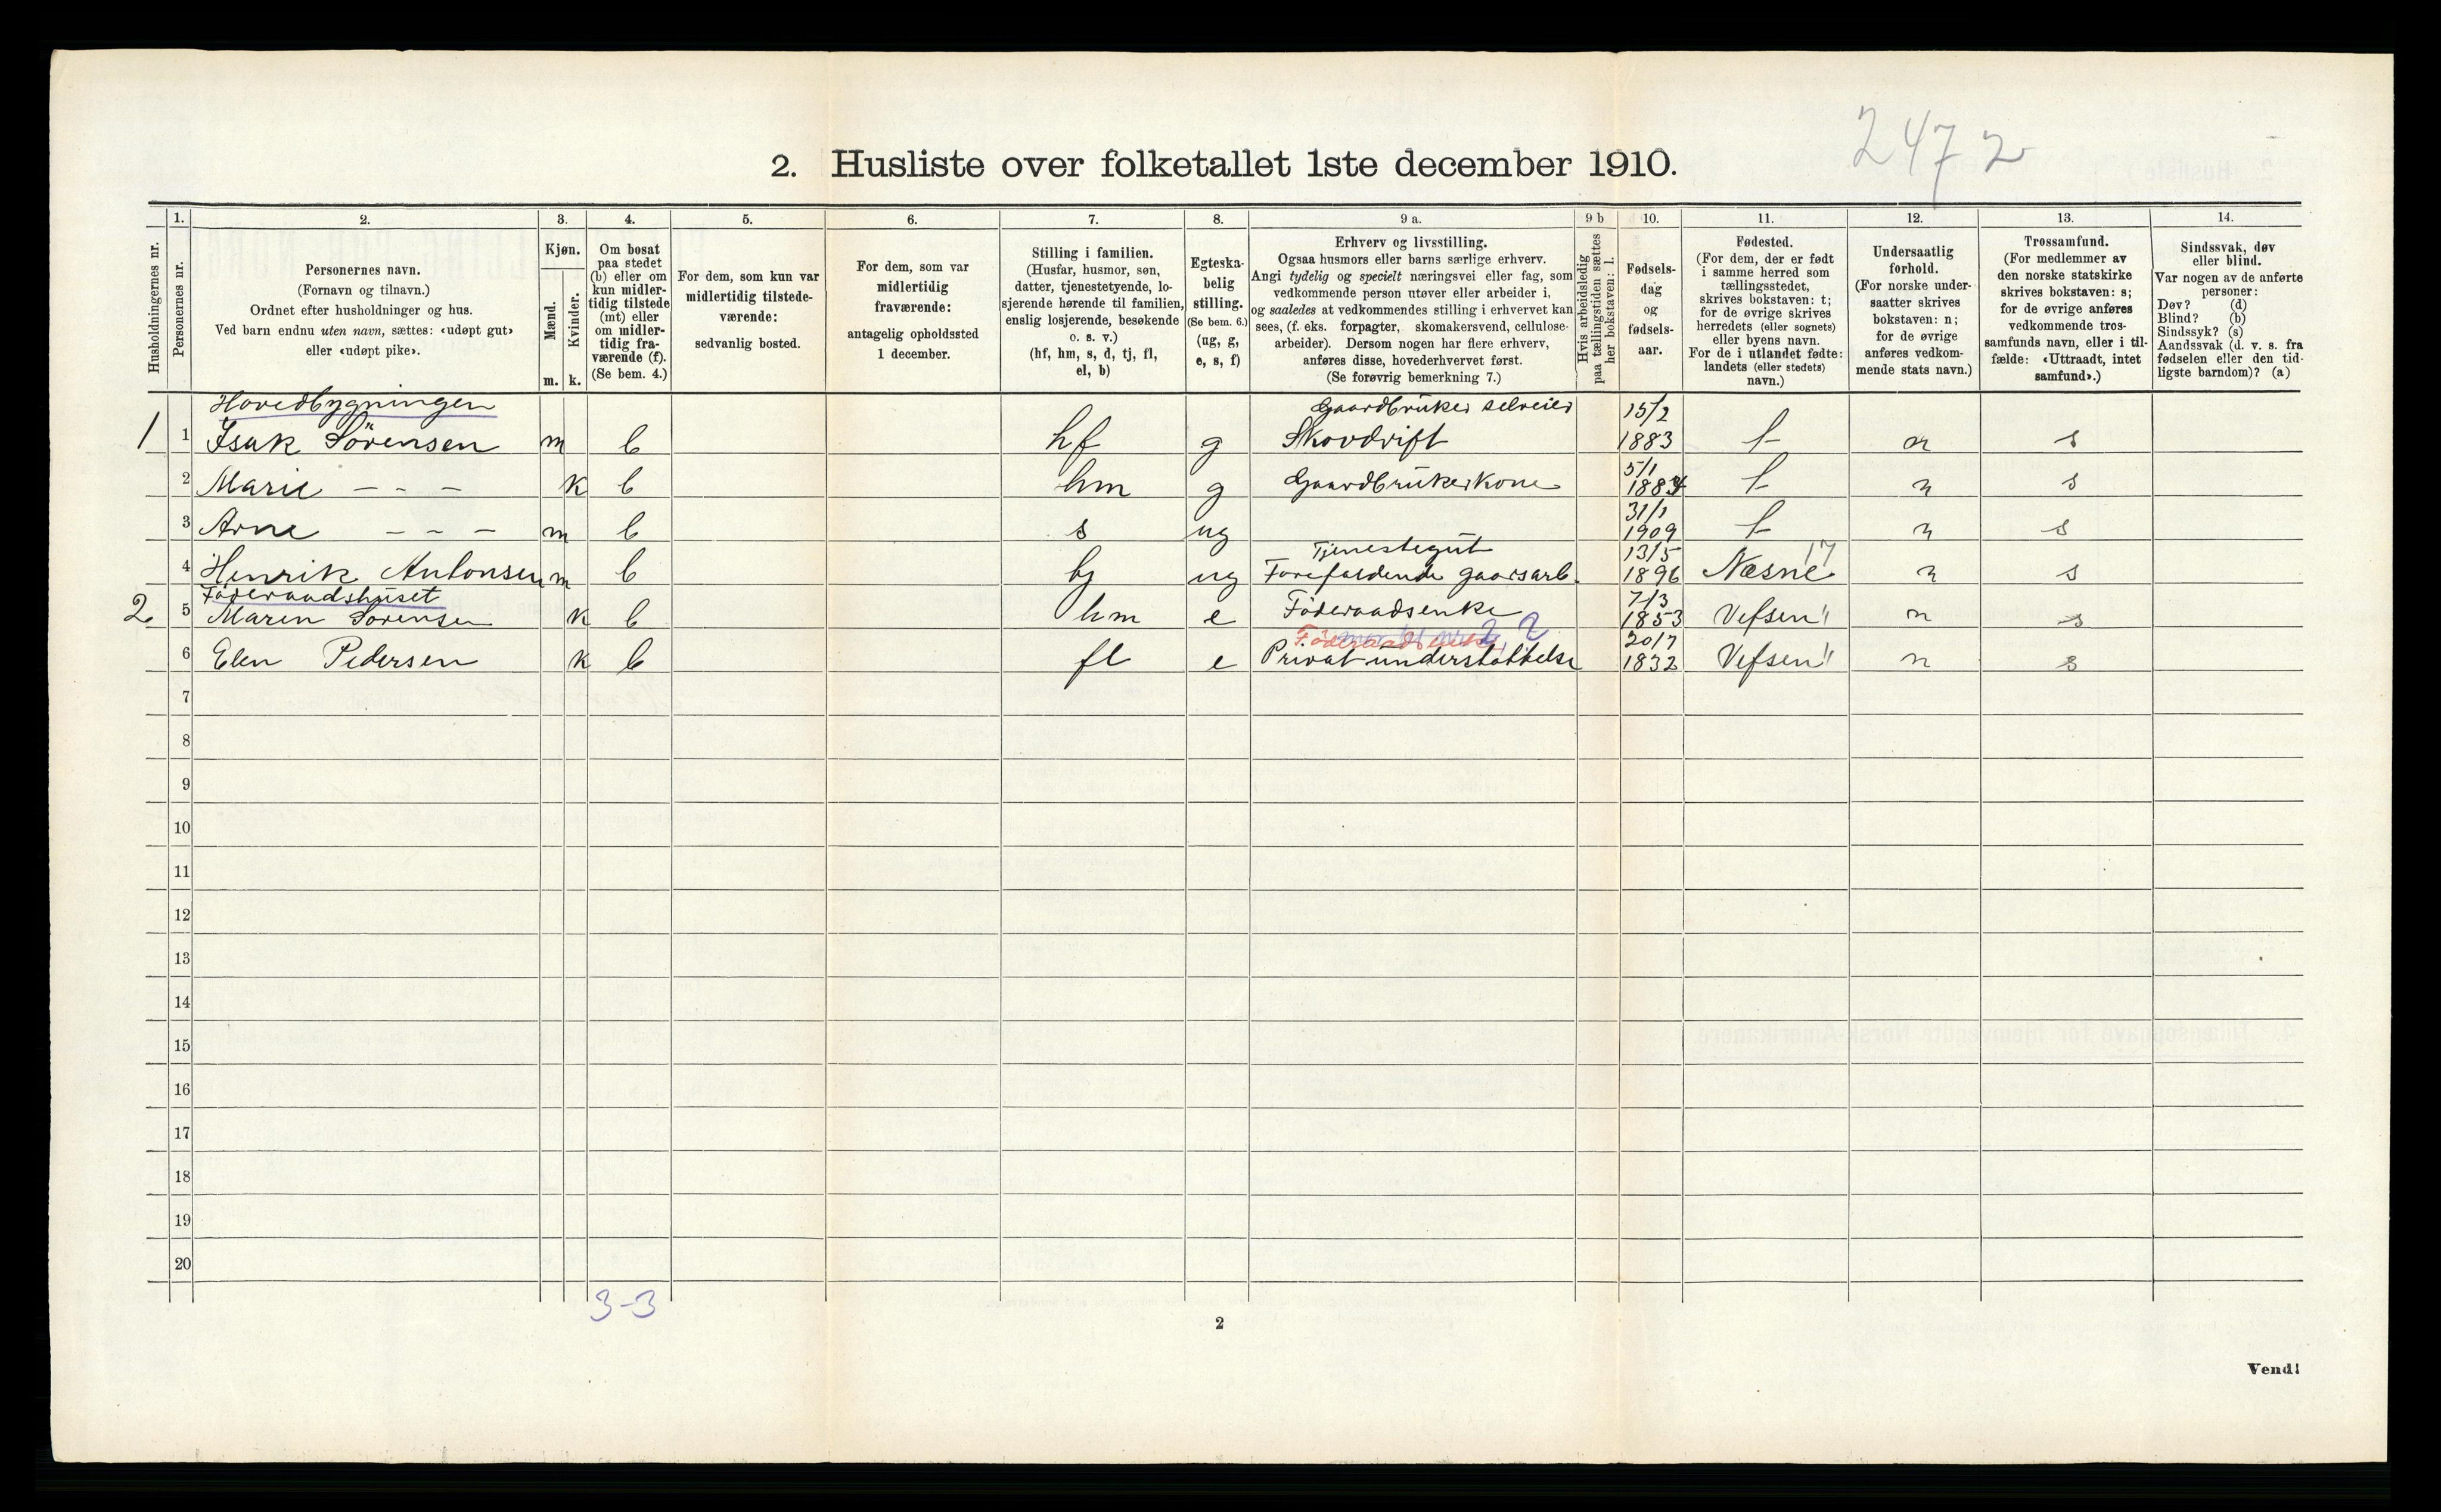 2472
2. Husliste over folketallet 1ste december 1910.
1. 2. 3. 4. 5. 6. 7. 8. 9 a. 9 b 10. 11. 12. 13. 14.
Husholdningernes nr.
Personernes nr.
Personernes navn.
(Fornavn og tilnavn.)
Ordnet efter husholdninger og hus.
Ved barn endnu uten navn, sættes: «udøpt gut»
eller «udøpt pike».
Kjøn.
Mænd.
Kvinder.
m. k.
Om bosat
paa stedet
(b) eller om
kun midler-
tidig tilstede
(mt) eller
om midler-
tidig fra-
værende (f).
(Se bem. 4.)
For dem, som kun var
midlertidig tilstede-
værende:
sedvanlig bosted.
For dem, som var
midlertidig
fraværende:
antagelig opholdssted
1 december.
Stilling i familien.
(Husfar, husmor, søn,
datter, tjenestetyende, lo-
sjerende hørende til familien,
enslig losjerende, besøkende
o. s. v.)
(hf, hm, s, d, tj, fl,
el, b)
Egteska-
belig
stilling.
(Se bem. 6.)
(ug, g,
e, s, f)
Erhverv og livsstilling.
Ogsaa husmors eller barns særlige erhverv.
Angi tydelig og specielt næringsvei eller fag, som
vedkommende person utøver eller arbeider i,
og saaledes at vedkommendes stilling i erhvervet kan
sees, (f. eks. forpagter, skomakersvend, cellulose-
arbeider). Dersom nogen har flere erhverv,
anføres disse, hovederhvervet først.
(Se forøvrig bemerkning 7.)
Hvis arbeidsledig
paa tællingstiden sættes
her bokstaven: l.
Fødsels-
dag
og
fødsels-
aar.
Fødested.
(For dem, der er født
i samme herred som
tællingsstedet,
skrives bokstaven: t;
for de øvrige skrives
herredets (eller sognets)
eller byens navn.
For de i utlandet fødte:
landets (eller stedets)
navn.)
Undersaatlig
forhold.
(For norske under-
saatter skrives
bokstaven: n;
for de øvrige
anføres vedkom-
mende stats navn.)
Trossamfund.
(For medlemmer av
den norske statskirke
skrives bokstaven: s;
for de øvrige anføres
vedkommende tros-
samfunds navn, eller i til-
fælde: «Uttraadt, intet
samfund».)
Sindssvak, døv
eller blind.
Var nogen av de anførte
personer:
Døv? (d)
Blind? (b)
Sindssyk? (s)
Aandssvak (d. v. s. fra
fødselen eller den tid-
ligste barndom)? (a)
Hovedbygningen Gaardbruker selveier 15/2
1 1 Isak Sörensen m b hf g Skovdrift 1883 t n s
5/1
2 Marie - - - k b hm g Gaardbrukerkone 1884 t n s
31/1
3 Arne - - - m b s ug 1909 t n s
Tjenestegut 13/5 17
4 Henrik Antonsen m b tj ug Forefaldende gaardsarb. 1896 Næsne n s
Föderaadshuset 7/3
2 5 Maren Sörensen k b hm e Föderaadsenke 1853 Vefsen " n s
2 20/7
6 Elen Pedersen k b fl e Privat understøttelse 1832 Vefsen " n s
7
8
9
10
11
12
13
14
15
16
17
18
19
20
3-3
2
Vend!